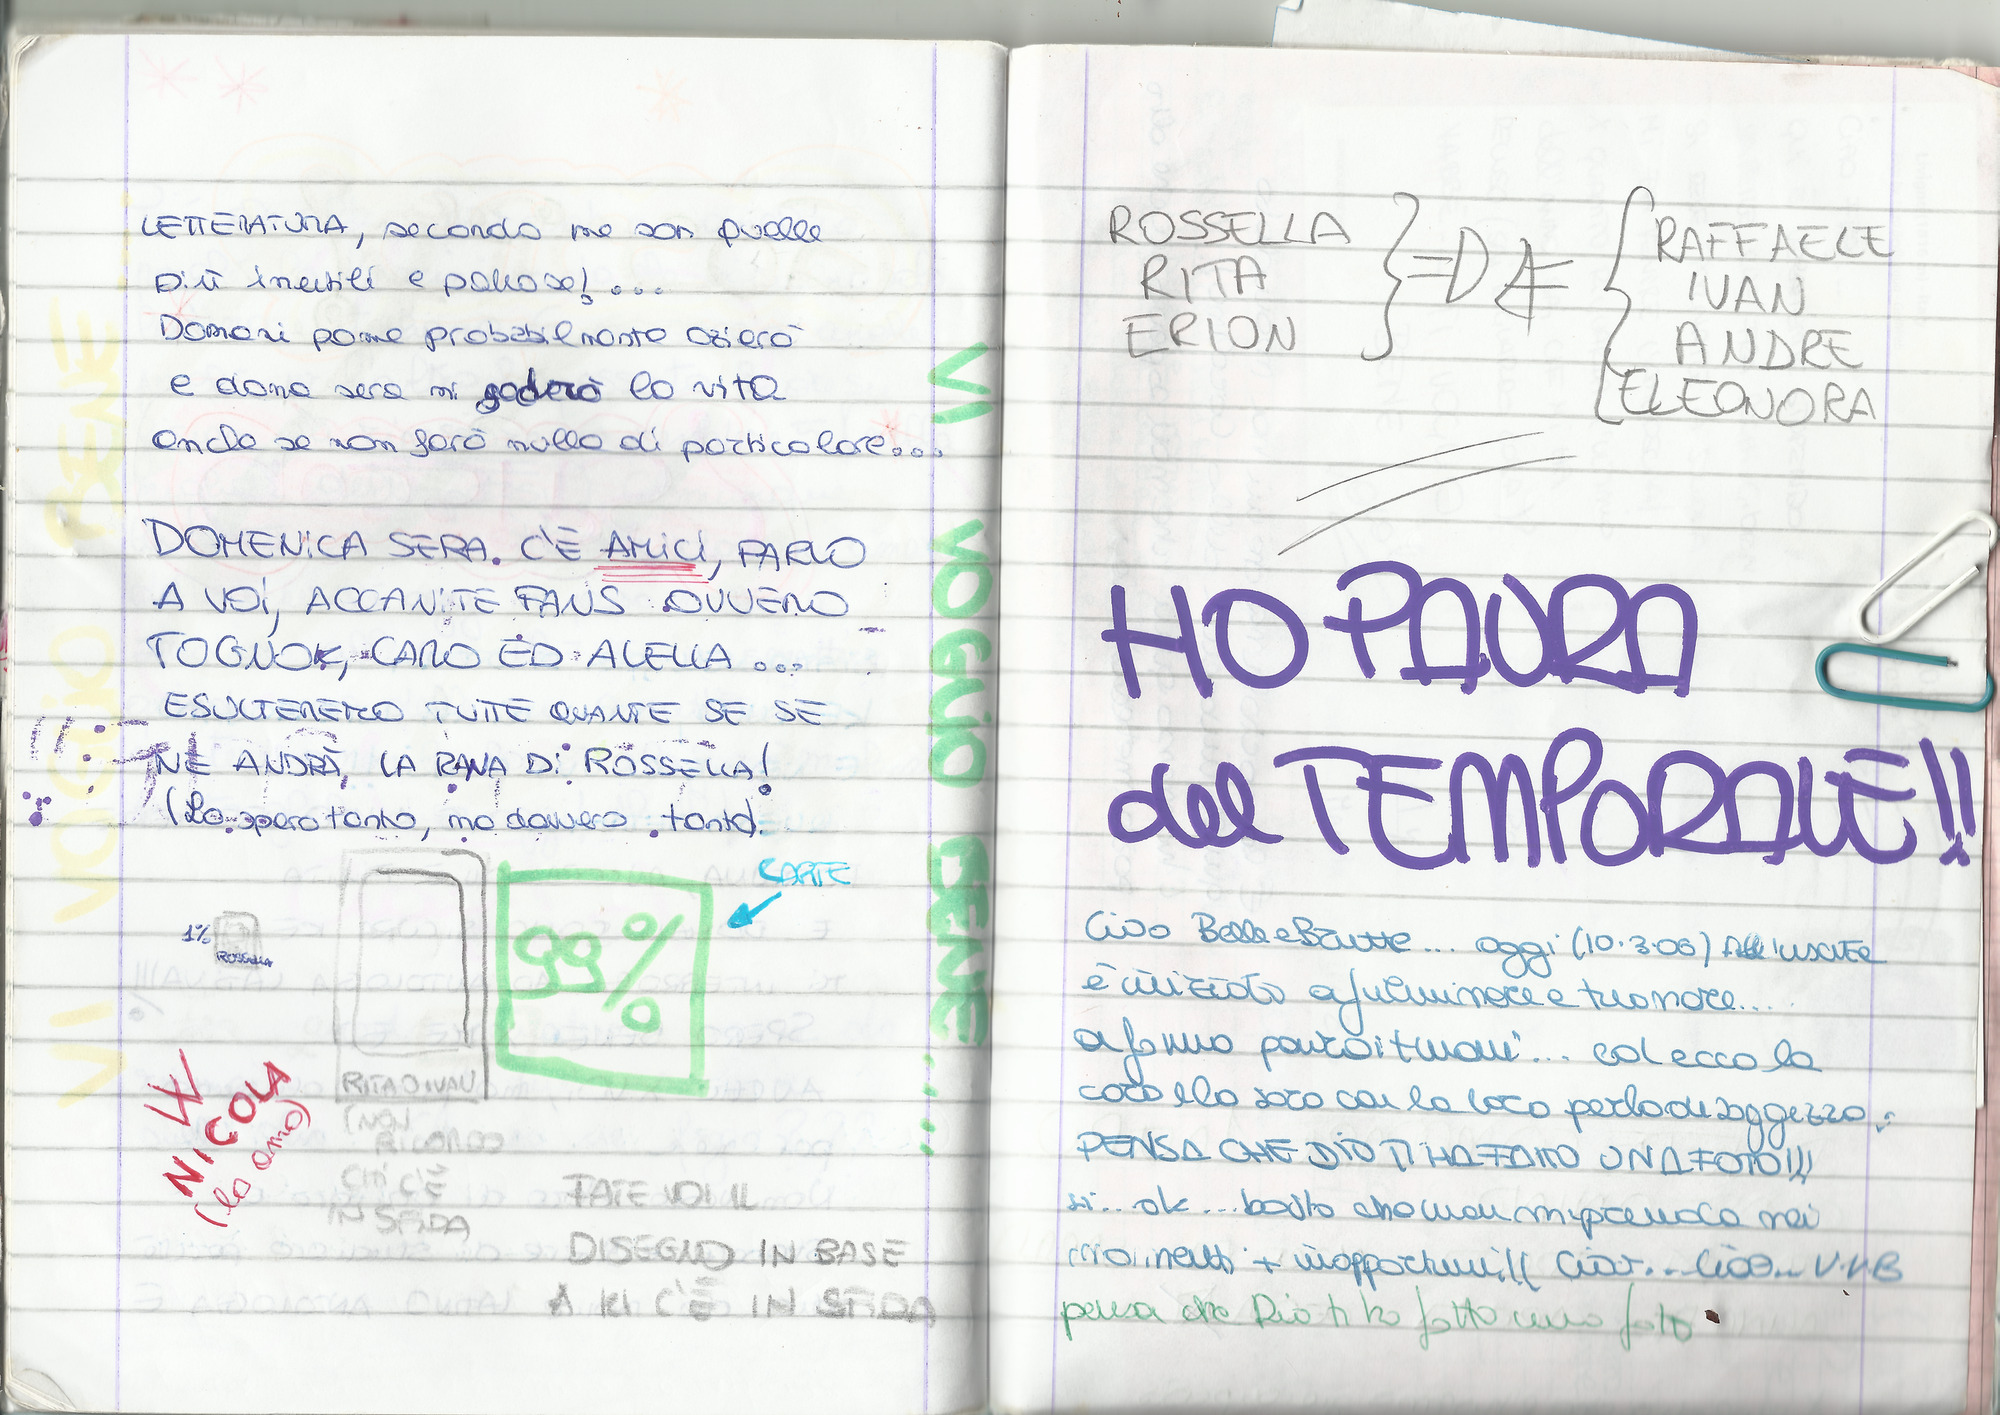 LETTERATURA, secondo me son quelle
più inutili e pallose!...
Domani pome probabilmente ozierò
e doma sera mi goderò la vita
anche se non farò nulla di particolare...
DOMENICA SERA. C'È AMICI, PARLO
A VOI, ACCANITE FANS OVVERO
TOGNOK, CARO ED ALELLA ...
ESULTEREMO TUTTE QUANTE SE SE
NE ANDRÀ, LA RANA DI ROSSELLA!
(Lo spero tanto, ma davvero tanto).
1%
ROSSELLA
RITA O IVAN
(NON
RICORDO
CHI C'È
IN SFIDA
99%
CARTE
W
NICOLA
(lo amo)
FATE VOI IL
DISEGNO IN BASE
A KI C'È IN SFIDA
VI VOGLIO BENE ...
VI VOGLIO BENE....
ROSSELLA
RITA
ERION
RAFFAELE
IVAN
ANDRE
ELEONORA
HO PAURA
del TEMPORALE!!
Ciao Belle e Brutte... oggi (10.3.06) All'uscita
è iniziato a fulminare e tuonare...
ed ecco la
cara ella sara con la loro perla di saggezza:
PENSA CHE DIO TI HA FATTO UNA FOTO!!!
si.. ok... basta che non mi prenda nei
momenti + inopportuni!! Ciao... Ciao... V.V.B
pensa che Dio ti ha fatto una foto